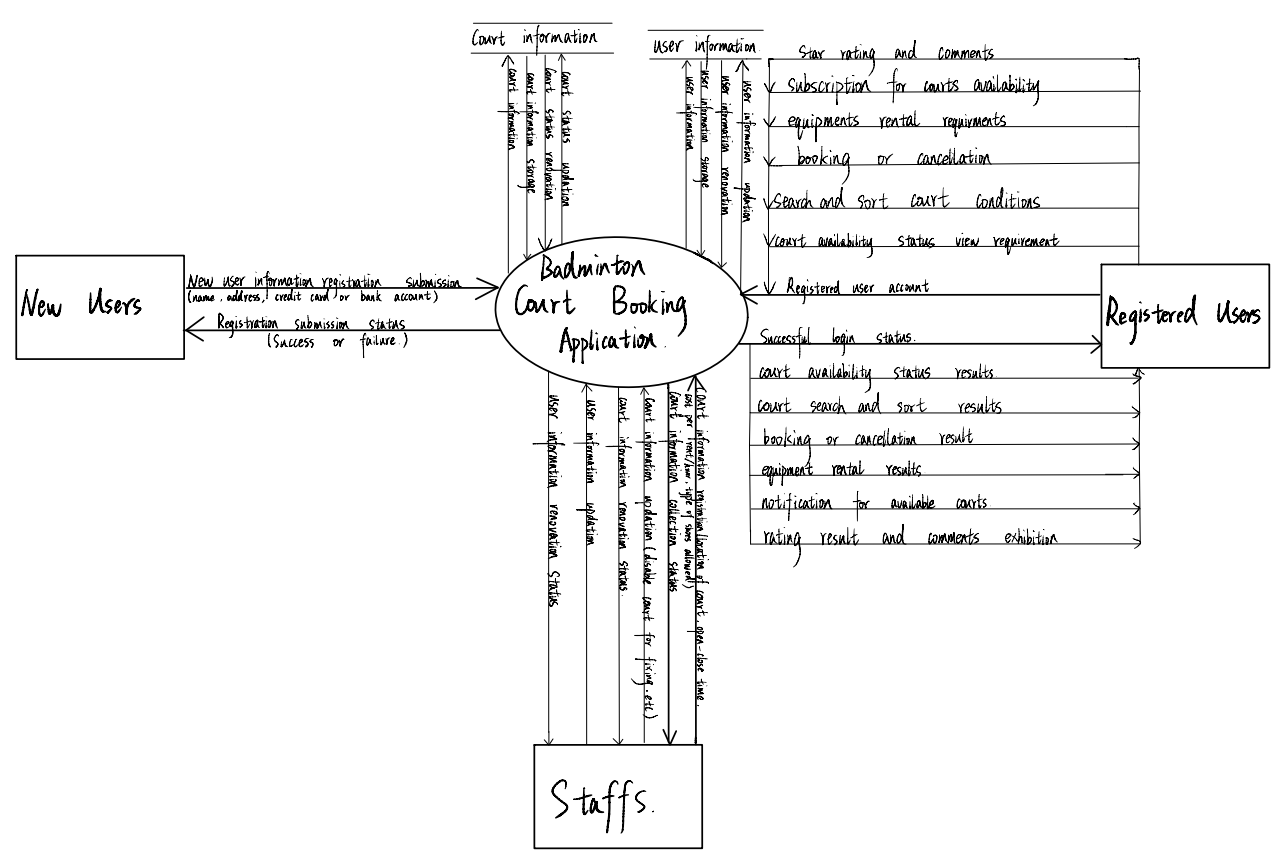 Court information
User information
court information
court information storage
Court status renovation
Court status updation
user information
user information storage
user information renovation
user information updation
Star rating and comments
subscription for courts availability
equipments rental requirments
booking or cancellation
Search and sort court conditions
court availability status view requirement
Registered user account
New Users
New user information registration submission
(name, address, credit card or bank account)
Registration submission status
(Success or failure.)
Badminton
Court Booking
Application.
Registered Users
Successful login status.
court availability status results
court search and sort results
booking or cancellation result
equipment rental results
notification for available courts
rating result and comments exhibition
user information renovation status
user information updation
court information renovation status.
Court information updation (disable court for fixing, etc)
Court information collection status
Court information registration (location of court, open-close time,
cost per rent/hour, type of shoes allowed)
Staffs.